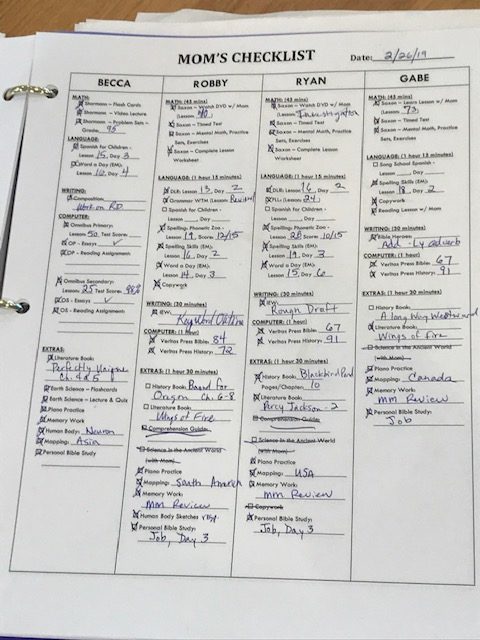 MOM'S CHECKLIST
Date: 2/26/19
BECCA
MATH:
Shormann – Flash Cards
Shormann – Video Lecture
Shormann – Problem Sets –
Grade: 95
LANGUAGE:
Spanish for Children –
Lesson 15, Day 3
Word a Day (EM):
Lesson 10, Day 4
WRITING:
Composition:
Work on RD
COMPUTER:
Omnibus Primary:
Lesson 50, Test Score:
OP – Essays ✓
OP – Reading Assignment
Omnibus Secondary:
Lesson 25 Test Score: 98%
OS – Essays ✓
OS – Reading Assignment
EXTRAS:
Literature Book:
Perfectly Unique
Ch. 4 & 5
Earth Science – Flashcards
Earth Science – Lecture & Quiz
Piano Practice
Memory Work
Human Body: Neuron
Mapping: Asia
Personal Bible Study
ROBBY
MATH: (45 mins)
Saxon – Watch DVD w/ Mom
(Lesson 40)
Saxon – Timed Test
Saxon – Mental Math, Practice
Sets, Exercises
Saxon – Complete Lesson
Worksheet
LANGUAGE: (1 hour 15 minutes)
DLR: Lesson 13, Day 2
Grammar WTM (Lesson Review)
Spanish for Children –
Lesson , Day
Spelling: Phonetic Zoo –
Lesson 19 Score: 12/15
Spelling Skills (EM):
Lesson 16, Day 2
Word a Day (EM):
Lesson 14, Day 3
Copywork
WRITING: (30 minutes)
IEW:
Key Word Outline
COMPUTER: (1 hour)
Veritas Press Bible: 84
Veritas Press History: 72
EXTRAS: (1 hour 30 minutes)
History Book: Bound for
Oregon Ch. 6-8
Literature Book:
Wings of Fire
Comprehension Guide:
Science in the Ancient World
(with Mom)
Piano Practice
Mapping: South America
Memory Work:
MM Review
Human Body Sketches
Personal Bible Study:
Job, Day 3
RYAN
MATH: (45 mins)
Saxon – Watch DVD w/ Mom
(Lesson Investigation
Saxon – Timed Test
Saxon – Mental Math, Practice
Sets, Exercises
Saxon – Complete Lesson
Worksheet
LANGUAGE: (1 hour 15 minutes)
DLR: Lesson 16, Day 2
FLL: (Lesson 24)
Spanish for Children –
Lesson , Day
Spelling: Phonetic Zoo –
Lesson 28 Score: 10/15
Spelling Skills (EM):
Lesson 19, Day 3
Word a Day (EM):
Lesson 15, Day 6
WRITING: (30 minutes)
IEW:
Rough Draft
COMPUTER: (1 hour)
Veritas Press Bible: 67
Veritas Press History: 91
EXTRAS: (1 hour 30 minutes)
History Book: Blackbird Pond
Pages/Chapters: 10
Literature Book:
Percy Jackson - 2
Comprehension Guide:
Science in the Ancient World
(with Mom)
Piano Practice
Mapping: USA
Memory Work:
MM Review
Copywork
Personal Bible Study:
Job, Day 3
GABE
MATH: (45 mins)
Saxon – Learn Lesson w/ Mom
(Lesson 73)
Saxon – Timed Test
LANGUAGE: (1 hour)
Song School Spanish –
Lesson , Day
Spelling Skills (EM):
Lesson 18, Day 2
Copywork
Reading Lesson w/ Mom
WRITING: (30 minutes)
Bible Heroes:
Add -ly adverb
COMPUTER: (1 hour)
Veritas Press Bible: 67
Veritas Press History: 91
EXTRAS: (1 hour 30 minutes)
History Book:
A Long Way Westward
Literature Book:
Wings of Fire
Science in the Ancient World
(with Mom)
Piano Practice
Mapping: Canada
Memory Work:
MM Review
Personal Bible Study:
Job